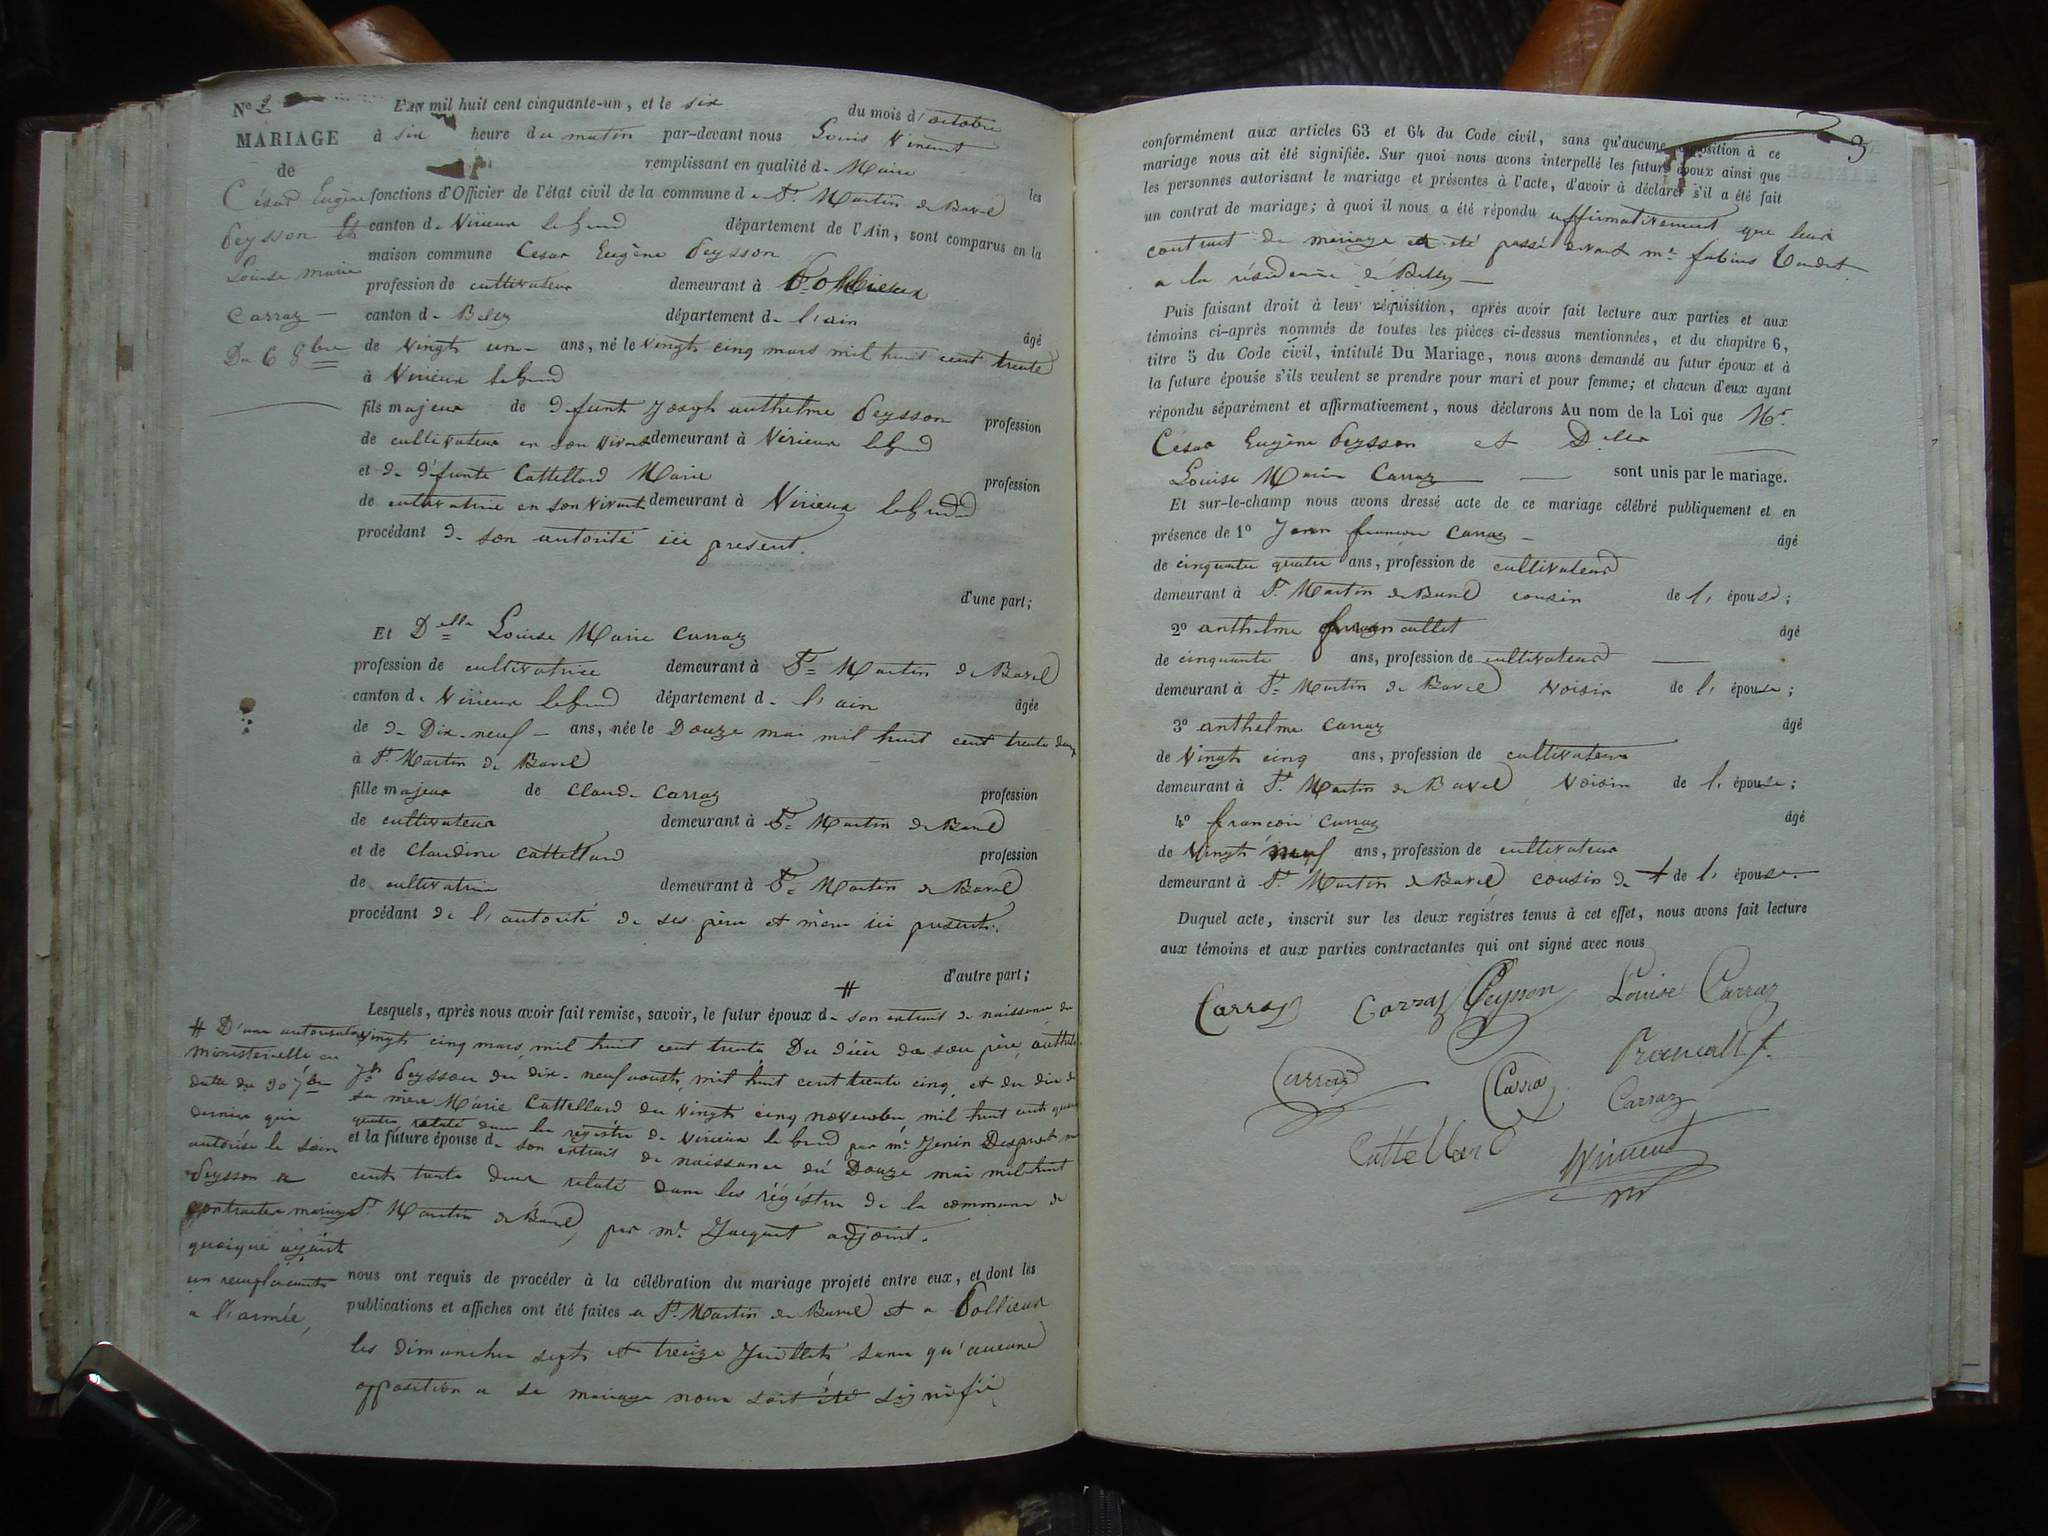 L'an mil huit cent cinquante-un, et le six du mois d'octobre
à six heure du matin par-devant nous Louis Vincent
remplissant en qualité de Maire les
fonctions d'Officier de l'état civil de la commune de St. Martin de Bavel
canton de Virieux legrand département de l'Ain, sont comparus en la
maison commune Cesar Eugène Peysson
profession de cultivateur demeurant à Pollieux
canton de Belley département de l'ain âgé
de Vingts un ans, né le Vingts cinq mars mil huit cent trente
à Virieux legrand
fils majeur de défunt Joseph anthelme Peysson profession
de cultivateur en son vivant demeurant à Virieux legrand
et de défunte Cattelard Marie profession
de cultivatrice en son vivant demeurant à Virieux legrand
procédant de son autorité ici present.
d'une part;
Et Delle Louise Marie Carraz
profession de cultivatrice demeurant à St. Martin de Bavel
canton de Virieux legrand département de l'ain âgée
de de Dix-neuf ans, née le Douze mai mil huit cent trente deux
à St. Martin de Bavel
fille majeur de Claude Carraz profession
de cultivateur demeurant à St. Martin de Bavel
et de Claudine Cattelard profession
de cultivatrice demeurant à St. Martin de Bavel
procédant de l'autorité de ses père et mère ici presents.
d'autre part;
Lesquels, après nous avoir fait remise, savoir, le futur époux de # son extrait de naissance du
vingts cinq mars mil huit cent trente Du décès de son père, anthelme
Jph Peysson du dix-neuf aousts mil huit cent trente cinq, et du dix de
sa mère Marie Cattellard du Vingts cinq novembre mil huit cents quarante
quatre relaté dans les régistre de Virieux le grand par mr. Jenin
et la future épouse de son extrait de naissance du Douze mai mil huit
cents trente deux relaté dans les régistre de la commune de
St. Martin de Bavel, par mr. Jacquet adjoint.
nous ont requis de procéder à la célébration du mariage projeté entre eux, et dont les
publications et affiches ont été faites a St. Martin de Bavel et a Pollieux
les dimanches septs et treize Juillets sans qu'aucune
opposition a se mariage nous soit été signifié
No 2
MARIAGE
de
César Eugène
Peysson et
Louise marie
Carraz
Du 6 8bre
# D'une autorisation
ministerielle en
date du 30 7bre
dernier qui
autorise le sieur
Peysson a
contracter mariage
quoique ayant
un remplacants
a l'armée,
3
conformément aux articles 63 et 64 du Code civil, sans qu'aucune opposition à ce
mariage nous ait été signifiée. Sur quoi nous avons interpellé les futurs époux ainsi que
les personnes autorisant le mariage et présentes à l'acte, d'avoir à déclarer s'il a été fait
un contrat de mariage; à quoi il nous a été répondu affirmativement que leur
contrat de mariage a été passé devant mr. fabius
a la résidence de Belley
Puis faisant droit à leur réquisition, après avoir fait lecture aux parties et aux
témoins ci-après nommés de toutes les pièces ci-dessus mentionnées, et du chapitre 6,
titre 5 du Code civil, intitulé Du Mariage, nous avons demandé au futur époux et à
la future épouse s'ils veulent se prendre pour mari et pour femme; et chacun d'eux ayant
répondu séparément et affirmativement, nous déclarons Au nom de la Loi que Mr.
César Eugène Peysson et Delle
Louise Marie Carraz sont unis par le mariage.
Et sur-le-champ nous avons dressé acte de ce mariage célébré publiquement et en
présence de 1o Jean françois Carraz âgé
de cinquante quatre ans, profession de cultivateur
demeurant à St. Martin de Bavel cousin de l'épouse;
2o anthelme âgé
de cinquante ans, profession de cultivateur
demeurant à St. Martin de Bavel Voisin de l'épouse;
3o anthelme Carraz âgé
de Vingts cinq ans, profession de cultivateur
demeurant à St. Martin de Bavel Voisin de l'épouse;
4o françois Carraz âgé
de Vingts neuf ans, profession de cultivateur
demeurant à St. Martin de Bavel cousin de de l'épouse.
Duquel acte, inscrit sur les deux registres tenus à cet effet, nous avons fait lecture
aux témoins et aux parties contractantes qui ont signé avec nous
Carraz Carraz Peysson Louise Carraz
Carraz Carraz
Carraz
Cattellard Vincent